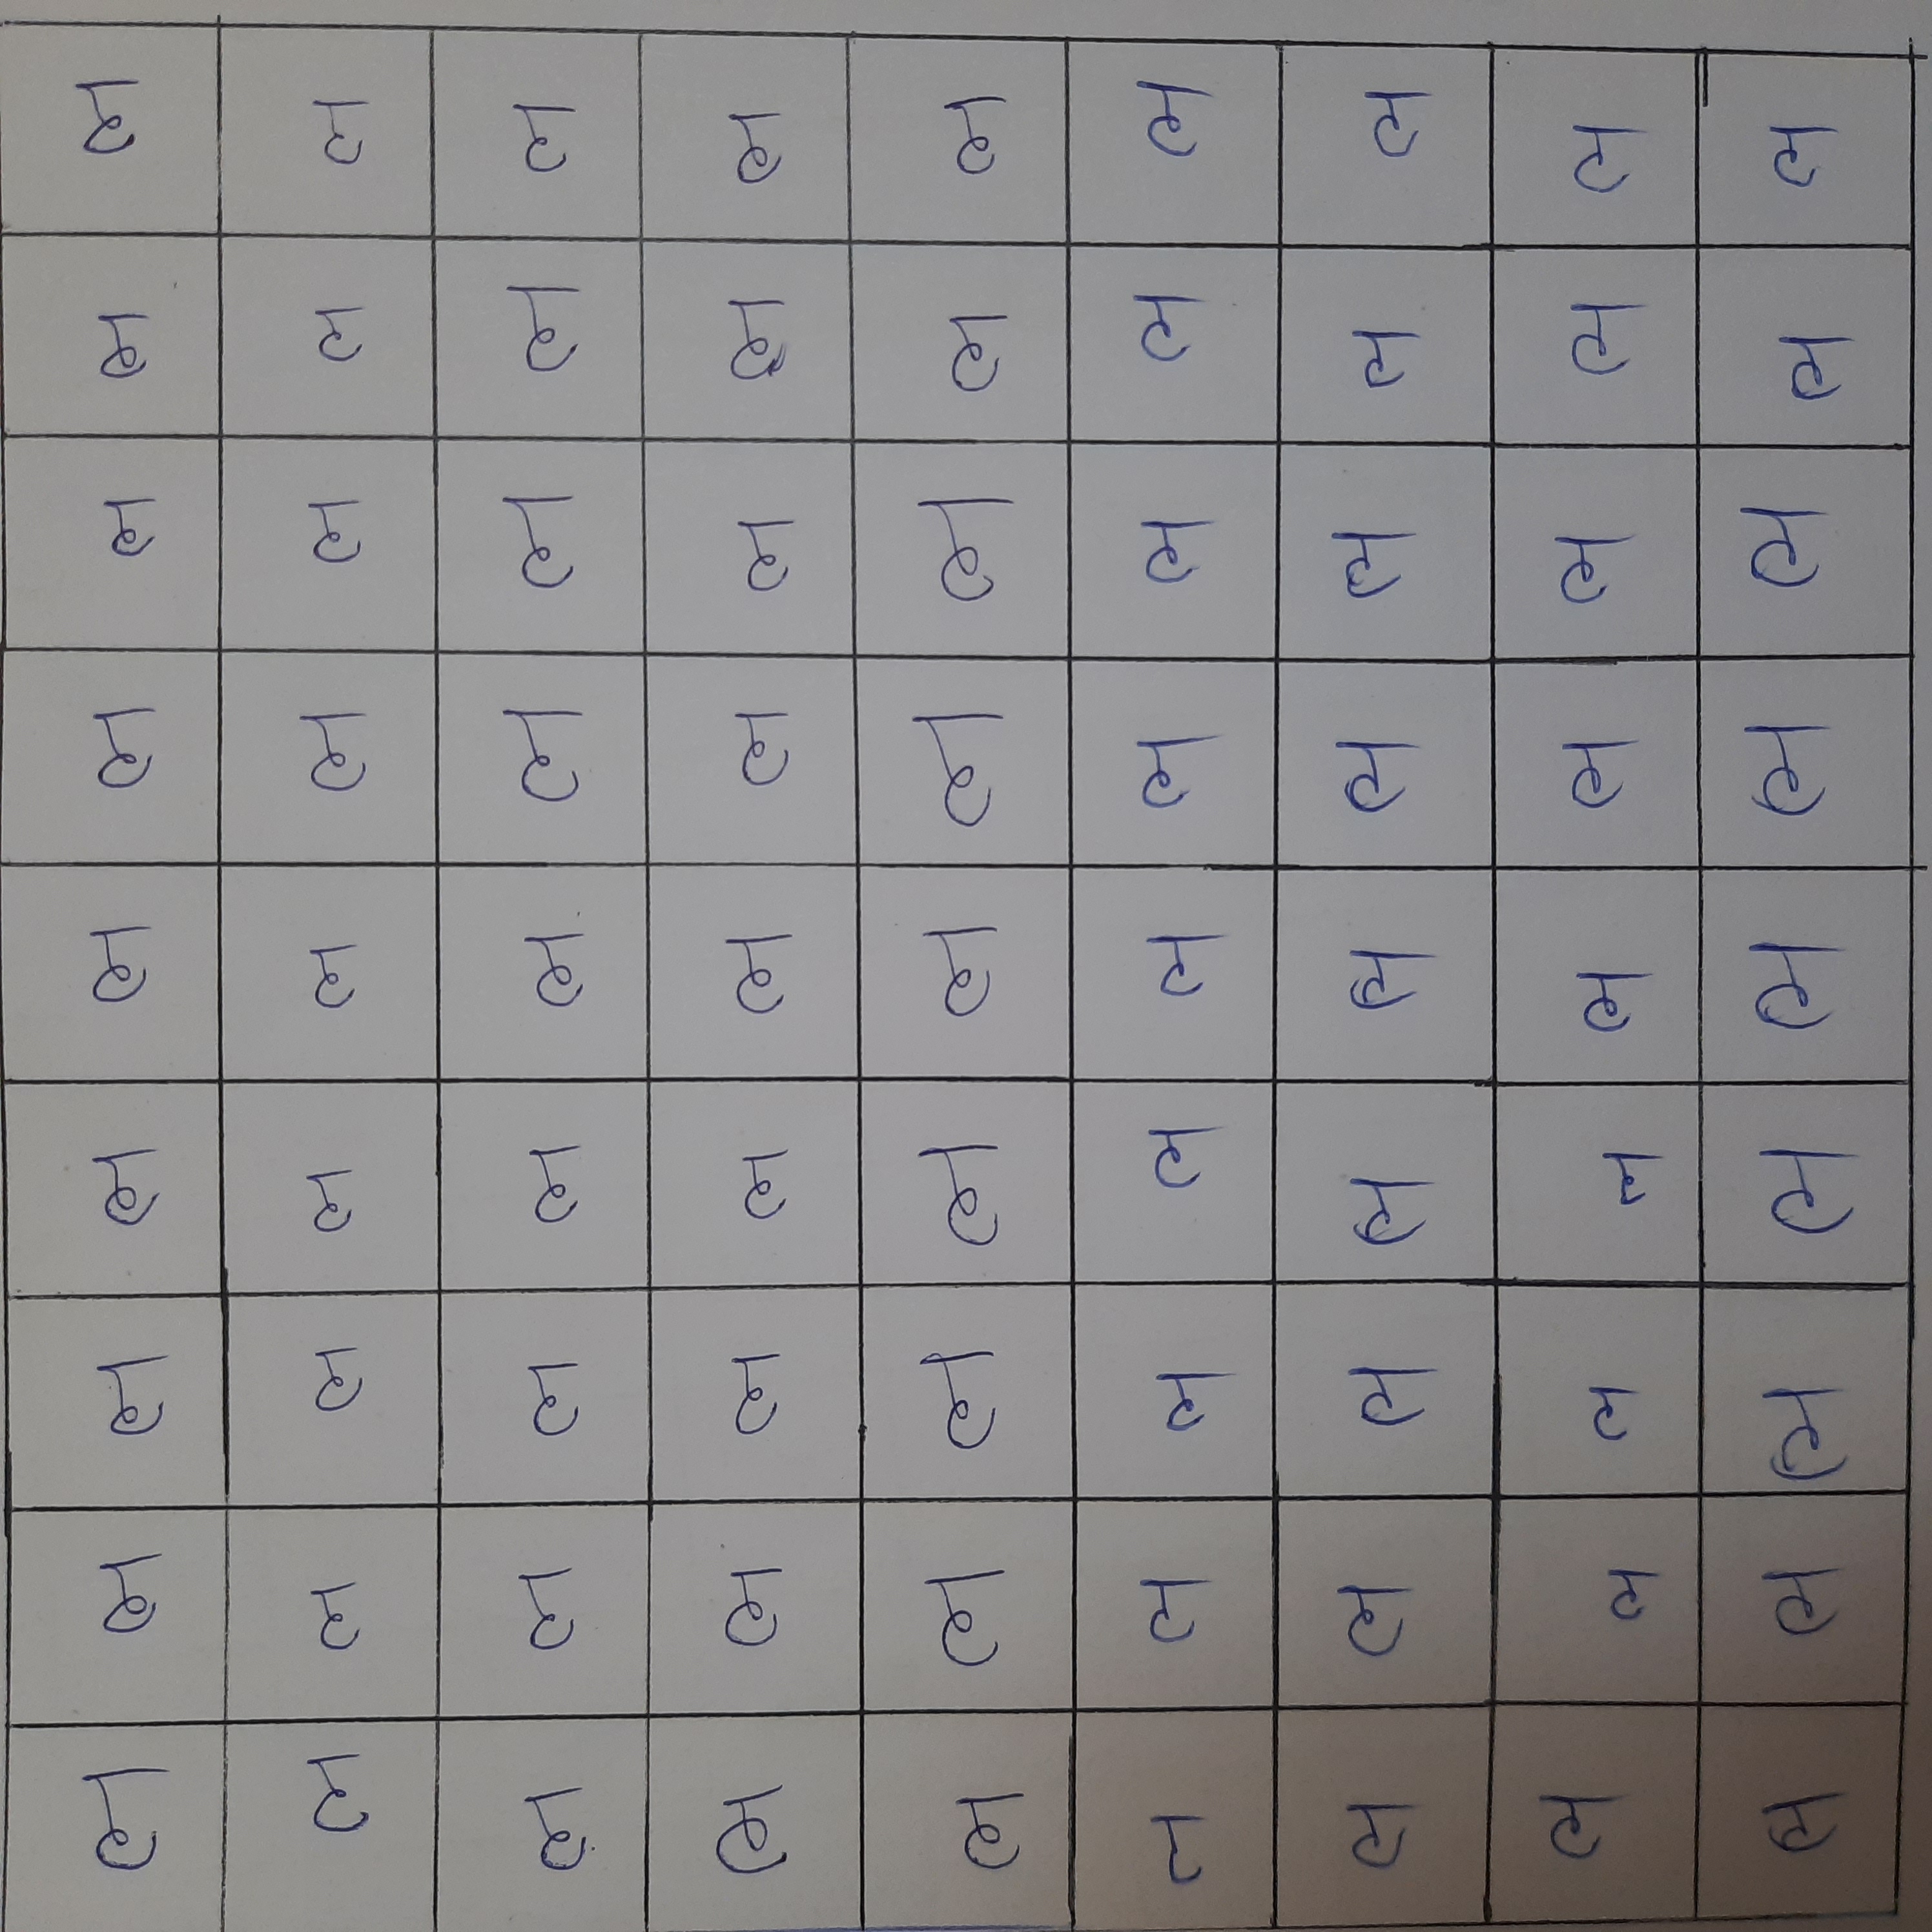 ભ ભ ભ ભ ભ ભ ભ ભ ભ
ભ ભ ભ ભ ભ ભ ભ ભ ભ
ભ ભ ભ ભ ભ ભ ભ ભ ભ
ભ ભ ભ ભ ભ ભ ભ ભ ભ
ભ ભ ભ ભ ભ ભ ભ ભ ભ
ભ ભ ભ ભ ભ ભ ભ ભ ભ
ભ ભ ભ ભ ભ ભ ભ ભ ભ
ભ ભ ભ ભ ભ ભ ભ ભ ભ
ભ ભ ભ ભ ભ ભ ભ ભ ભ